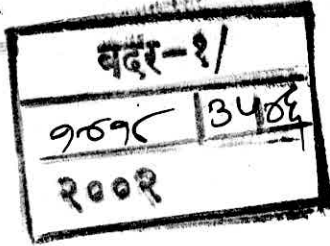 बदर-१/
१४१८ ३५/४६
२००२